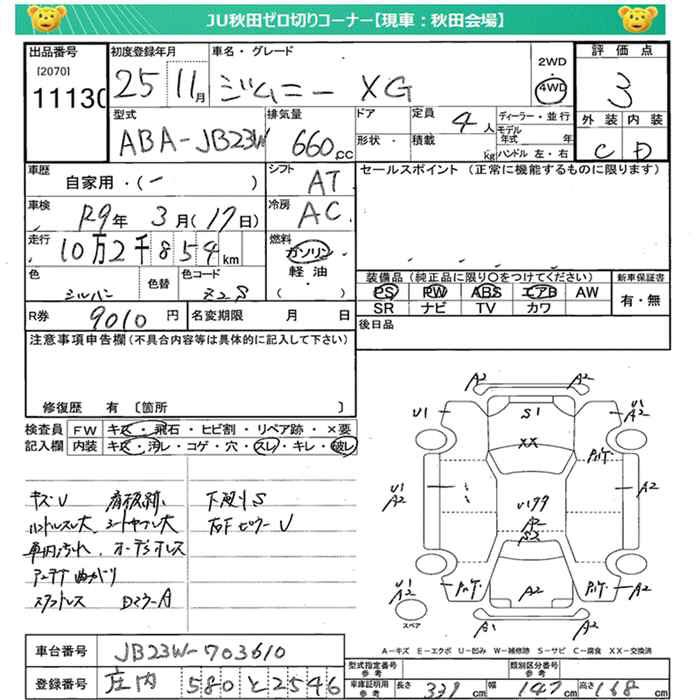 JU秋田ゼロ切りコーナー【現車：秋田会場】
出品番号
[2070]
11130
初度登録年月
25 11月
車名・グレード
ジムニー XG
2WD
4WD
評価点
3
外装 内装
C D
型式
ABA-JB23W
排気量
660cc
ドア
形状
定員 4人
積載 kg
ディーラー・並行
モデル年式 年
ハンドル 左・右
車歴
自家用・(ー )
シフト
AT
車検
R9年 3月(17日)
冷房
AC
走行
10万2千854km
燃料
ガソリン
軽油
( )
色
シルバー
色替
色コード
Z2S
セールスポイント (正常に機能するものに限ります)
装備品(純正品に限り○をつけてください)
PS PW ABS エアB AW
SR ナビ TV カワ
新車保証書
有・無
R券 9010円
名変期限 月 日
後日品
注意事項申告欄(不具合内容等は具体的に記入して下さい)
修復歴 有 〔箇所 〕
検査員記入欄
FW キズ・飛石・ヒビ割・リペア跡・×要
内装 キズ・汚レ・コゲ・穴・スレ・キレ・破レ
キズU
ハンドルスレ大、シートヤブレ大
車内汚れ、オーディオレス
スタッドレス DミラーA
下廻りS
右Fピラー U
A2 A2
U1 S1 U1 A2
XX
U1 A2
A2
U199
A2
U1 A2
A2
A2
A1 A2
スペア
A-キズ E-エクボ U-凹み W-補修跡 S-サビ C-腐食 XX-交換済
車台番号 JB23W-703610
登録番号 庄内 580 と 2546
型式指定番号 参考
類別区分番号 参考
車庫証明用 参考
長さ 339cm
幅 147cm
高さ 168cm